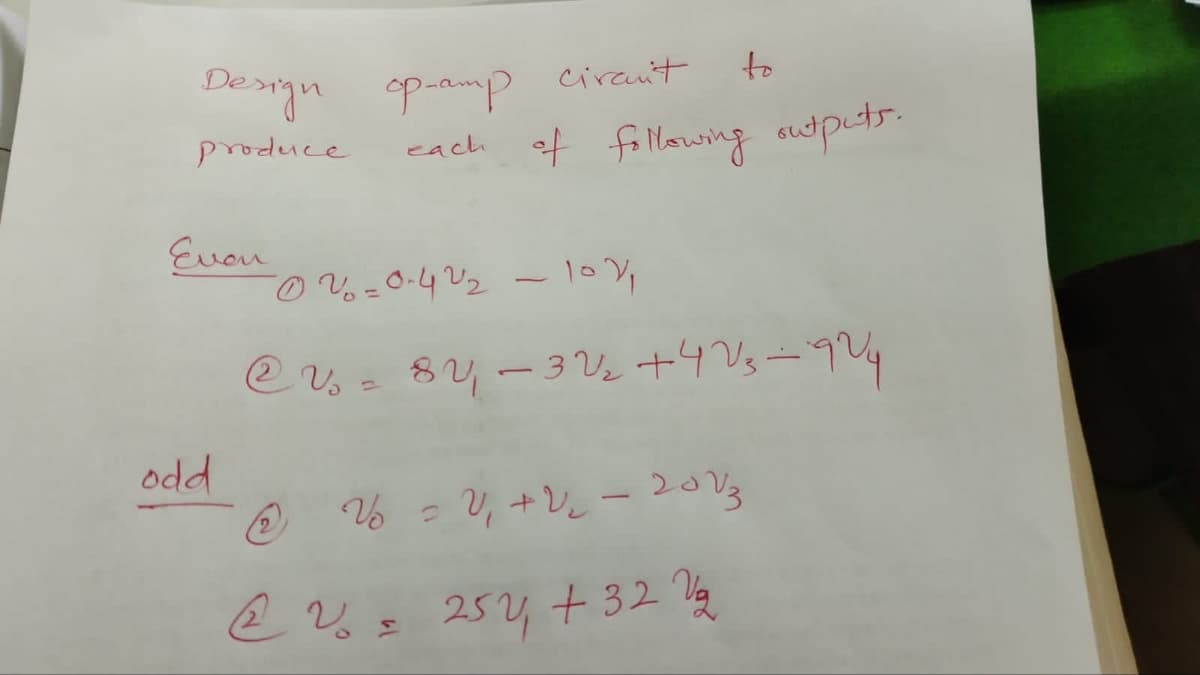 Design op-amp circuit to
produce each of following outputs.
Even
① v₀ = 0.4v₂ - 10v₁
② v₀ = 8v₁ - 3v₂ + 4v₃ - 9v₄
odd
② v₀ = v₁ + v₂ - 20v₃
② v₀ = 25v₁ + 32v₂